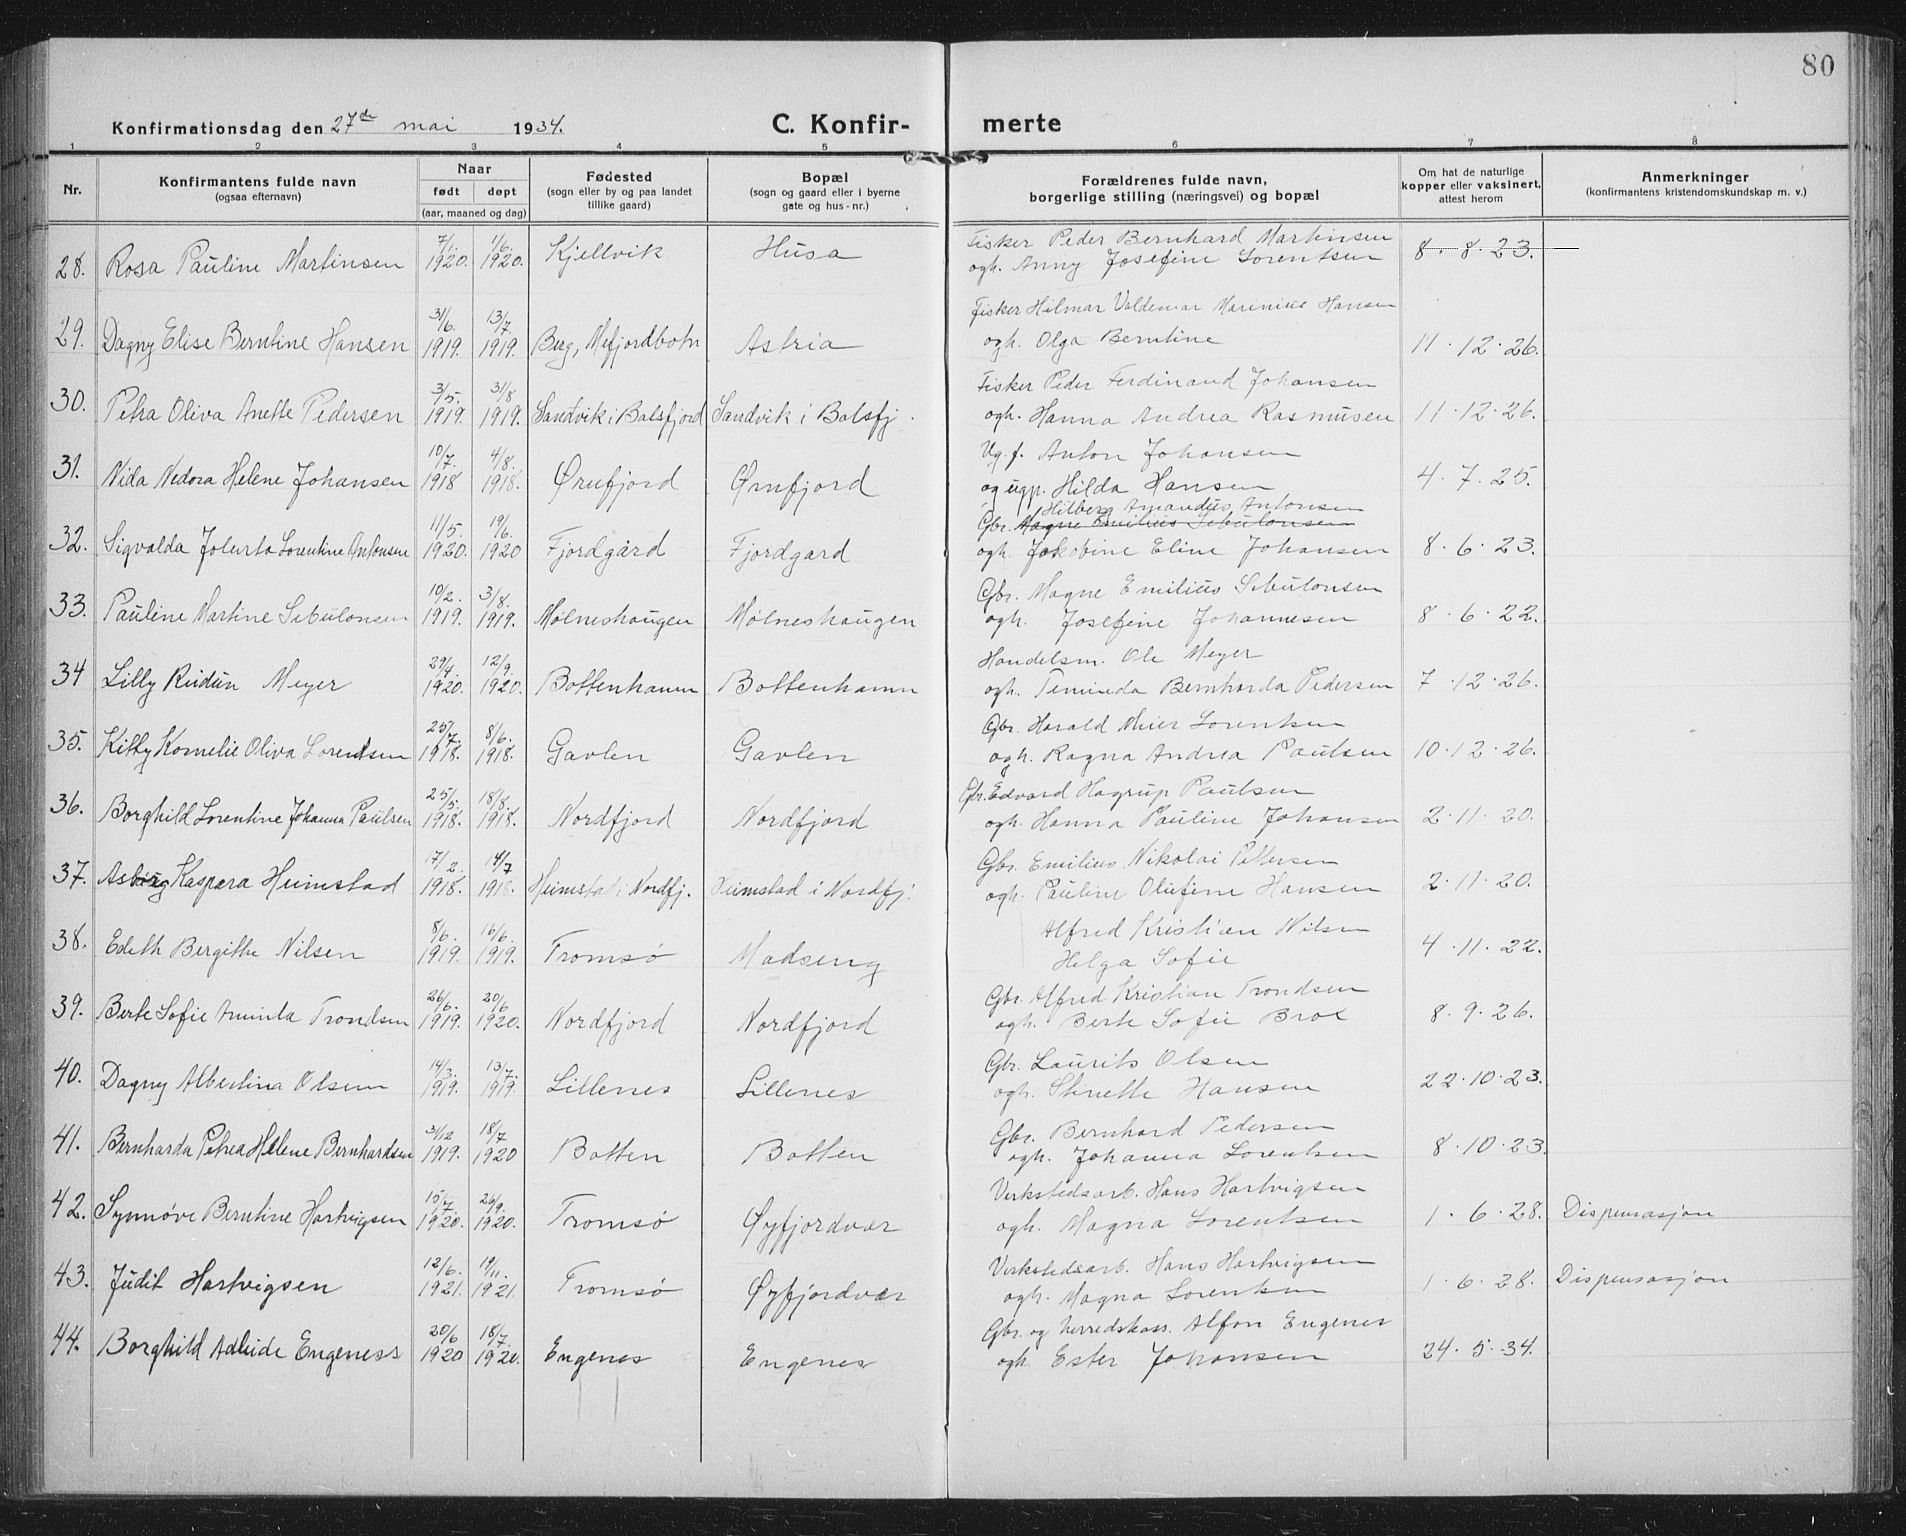 80
Konfirmationsdag den 27de mai 1934. C. Konfir- merte
1 2 3 4 5 6 7 8
Nr. Konfirmantens fulde navn (ogsaa efternavn) Naar født døpt (aar, maaned og dag) Fødested (sogn eller by og paa landet tillike gaard) Bopæl (sogn og gaard eller i byerne gate og hus-nr.) Forældrenes fulde navn, borgerlige stilling (næringsvei) og bopæl Om hat de naturlige kopper eller vaksinert, attest herom Anmerkninger (konfirmantens kristendomskundskap m. v.)
28. Rosa Pauline Martinsen 7/1. 1920. 1/6. 1920. Kjellvik Husa Fisker Peder Bernhard Martinsen
ogh. Anny Josefine Lorentsen 8. 8. 23.
29. Dagny Elise Berntine Hansen 31/6. 1919. 13/7. 1919. Berg, Mefjordbotn Astria Fisker Hilmar Valdemar Marinius Hansen
ogh. Olga Berntine 11. 12. 26.
30. Petra Oliva Anette Pedersen 3/5. 1919. 31/8 1919. Sandvik i Balsfjord Sandvik i Balsfj. Fisker Peder Ferdinand Johansen
ogh. Hanna Andrea Rasmusen 11. 12. 26.
31. Nida Nedora Helene Johansen 10/7. 1918 4/8. 1918. Ørnfjord Ørnfjord Ug.f. Anton Johansen
og ugp. Hilda Hansen 4. 7. 25.
32. Sigvalda Jolerta Lorentine Antonsen 11/5. 1920. 19/6. 1920 Fjordgård Fjordgard Hilberg Amandus Antonsen
Gbr. Magne Emilius Sibulonsen
ogh. Jakobine Eline Johansen 8. 6. 23.
33. Pauline Martine Sibulonsen 10/2. 1919. 3/8. 1919. Mølneshaugen Mølneshaugen Gbr. Magne Emilius Sibulonsen
ogh. Josefine Johannesen 8. 6. 22.
34 Lilly Ridun Meyer 29/4. 1920. 12/9. 1920. Bottenhamn Bottenhamn Handelsm. Ole Meyer
ogh. Teminda Bernharda Pedersen 7. 12. 26.
35. Kitty Kornelie Oliva Lorentsen 25/7. 1918. 8/6. 1918. Gavlen Gavlen Gbr. Harald Meier Lorentsen
ogh. Ragna Andrea Paulsen 10. 12. 26.
36. Borghild Lorentine Johanna Paulsen 25/5. 1918. 18/8. 1918. Nordfjord Nordfjord Gbr. Edvard Hagrup Paulsen
ogh. Hanna Pauline Johansen 2. 11. 20.
37. Asborg Kaspara Heimstad 17/2. 1918. 14/7 1918. Heimstad i Nordfj. Heimstad i Nordfj. Gbr. Emilius Nikolai Pettersen
ogh. Pauline Olufine Hansen 2. 11. 20.
38. Edith Bergithe Nilsen 8/6. 1919. 16/6. 1919. Tromsø Madseng Alfred Kristian Nilsen
Helga Sofie 4. 11. 22.
39. Berte Sofie Aminda Trondsen 26/6. 1919. 20/6 1920. Nordfjord Nordfjord Gbr. Alfred Kristian Trondsen
ogh. Berte Sofie Brox 8. 9. 26.
40. Dagny Albertina Olsen 14/3. 1919. 13/7. 1919. Lillenes Lillenes Gbr. Laurits Olsen
ogh. Stinette Hansen 22. 10. 23.
41. Bernharda Petrea Helene Bernhardsen 31/12 1919. 18/7 1920 Botten Botten Gbr. Bernhard Pedersen
ogh. Johanna Lorentsen 8. 10. 23.
42. Synnøve Berntine Hartvigsen 15/7. 1920. 26/9. 1920. Tromsø Øyfjordvær Verkstedsarb. Hans Hartvigsen
ogh. Magna Lorentsen 1. 6. 28. Dispensasjon
43. Judit Hartvigsen 12/6. 1921. 19/11. 1921. Tromsø Øyfjordvær Verkstedsarb. Hans Hartvigsen
ogh. Magna Lorentsen 1. 6. 28. Dispensasjon
44. Borghild Adleide Engeness 20/6 1920 18/7. 1920. Engenes Engenes Gbr. og herredskass. Alfon Engenes
ogh. Ester Johansen 24. 5. 34.